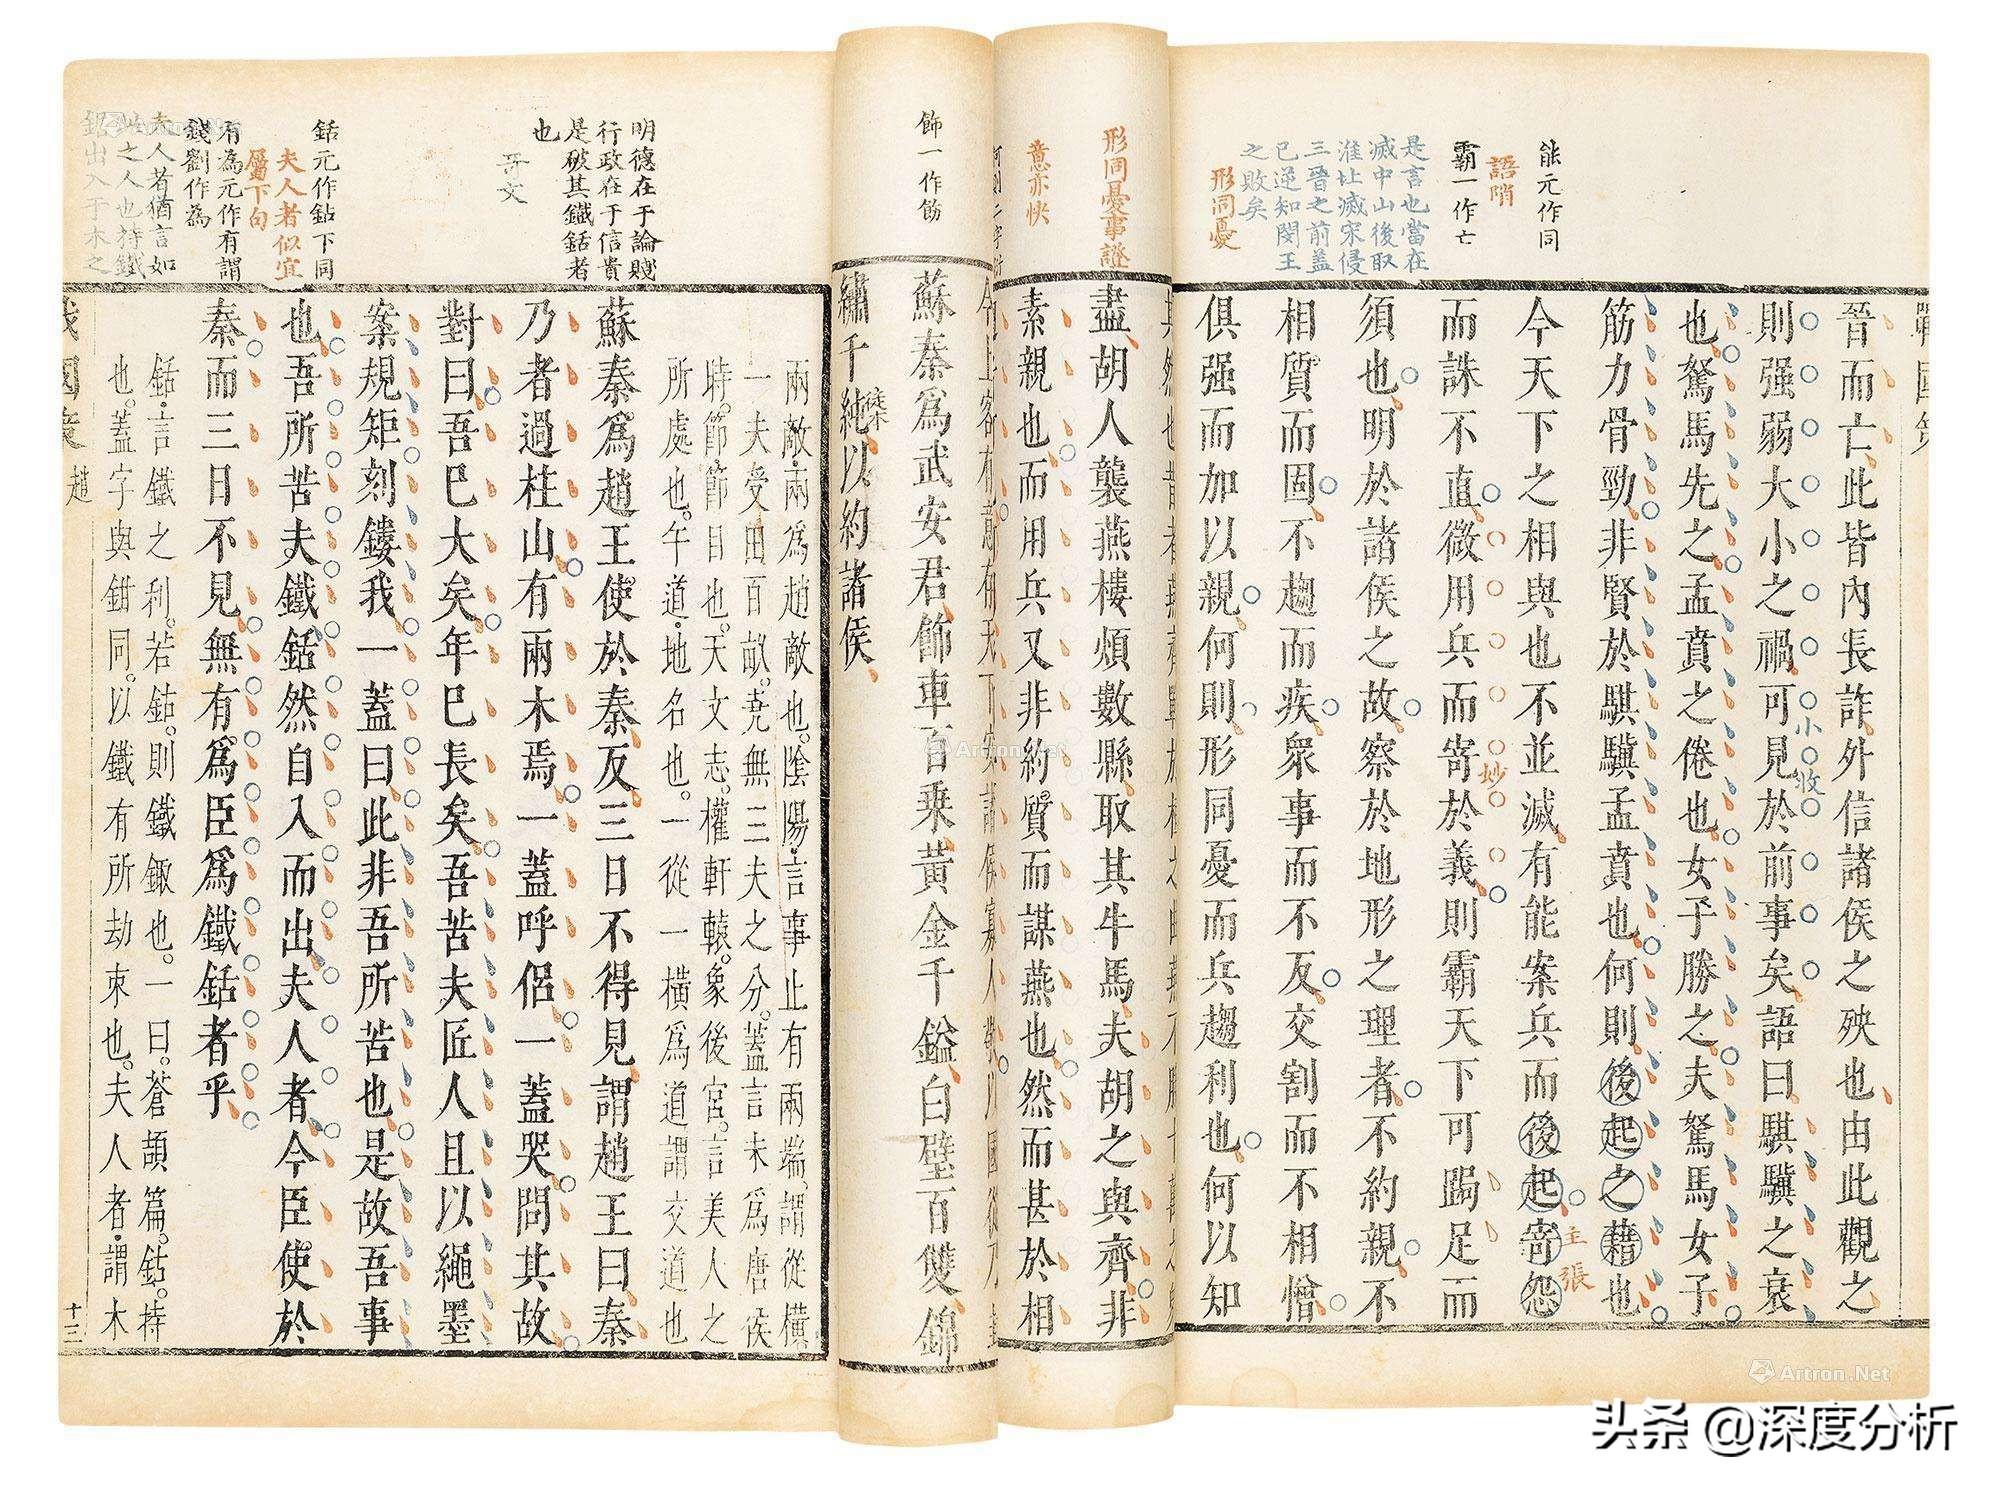 戰國策
能元作同
語哨
霸一作亡
是言也當在
滅中山後取
淮北滅宋侵
三晉之前蓋
已逆知閔王
之敗矣
形同憂
晉而亡此皆內長詐外信諸侯之殃也由此觀之
則强弱大小之禍可見於前事矣語曰騏驥之衰
小收
也駑馬先之孟賁之倦也女子勝之夫駑馬女子
筋力骨勁非賢於騏驥孟賁也何則後起之藉也
今天下之相與也不並滅有能案兵而後起寄怨
主張
而誅不直微用兵而寄於義則霸天下可跼足而
妙
須也明於諸侯之故察於地形之理者不約親不
相質而固不趨而疾衆事而不反交割而不相憎
俱强而加以親何則形同憂而兵趨利也何以知
形同憂事證
意亦快
盡胡人襲燕樓煩數縣取其牛馬夫胡之與齊非
素親也而用兵又非約質而謀燕也然而甚於相
飾一作飭
蘇秦爲武安君飾車百乘黃金千鎰白璧百雙錦
繡千純以約諸侯
明德在于論賤
行政在于信貴
是破其鐵銛者
也
奇文
銛元作鉆下同
夫人者似宜
屬下句
有為元作有謂
錢劉作為
夫人者猶言如
此之人也持鐵
鉆出入于木之
兩敵兩爲趙敵也。陰陽言事止有兩端。謂從橫
一夫受田百畝。堯無三夫之分。蓋言未爲唐侯
時。節節目也。天文志。權軒轅。象後宮。言美人之
所處也。午道地名也。一從一橫爲道謂交道也
蘇秦爲趙王使於秦反三日不得見謂趙王曰秦
乃者過柱山有兩木焉一蓋呼侶一蓋哭問其故
對曰吾已大矣年已長矣吾苦夫匠人且以繩墨
案規矩刻鏤我一蓋曰此非吾所苦也是故吾事
也吾所苦夫鐵銛然自入而出夫人者今臣使於
秦而三日不見無有爲臣爲鐵銛者乎
銛言鐵之利。若鈷。則鐵鋷也。一曰。蒼頡篇。鈷。持
也。蓋字與鉗同。以鐵有所劫束也。夫人者謂木
戰國策 趙
十三
Artron.Net
Artron.Net
头条 @深度分析